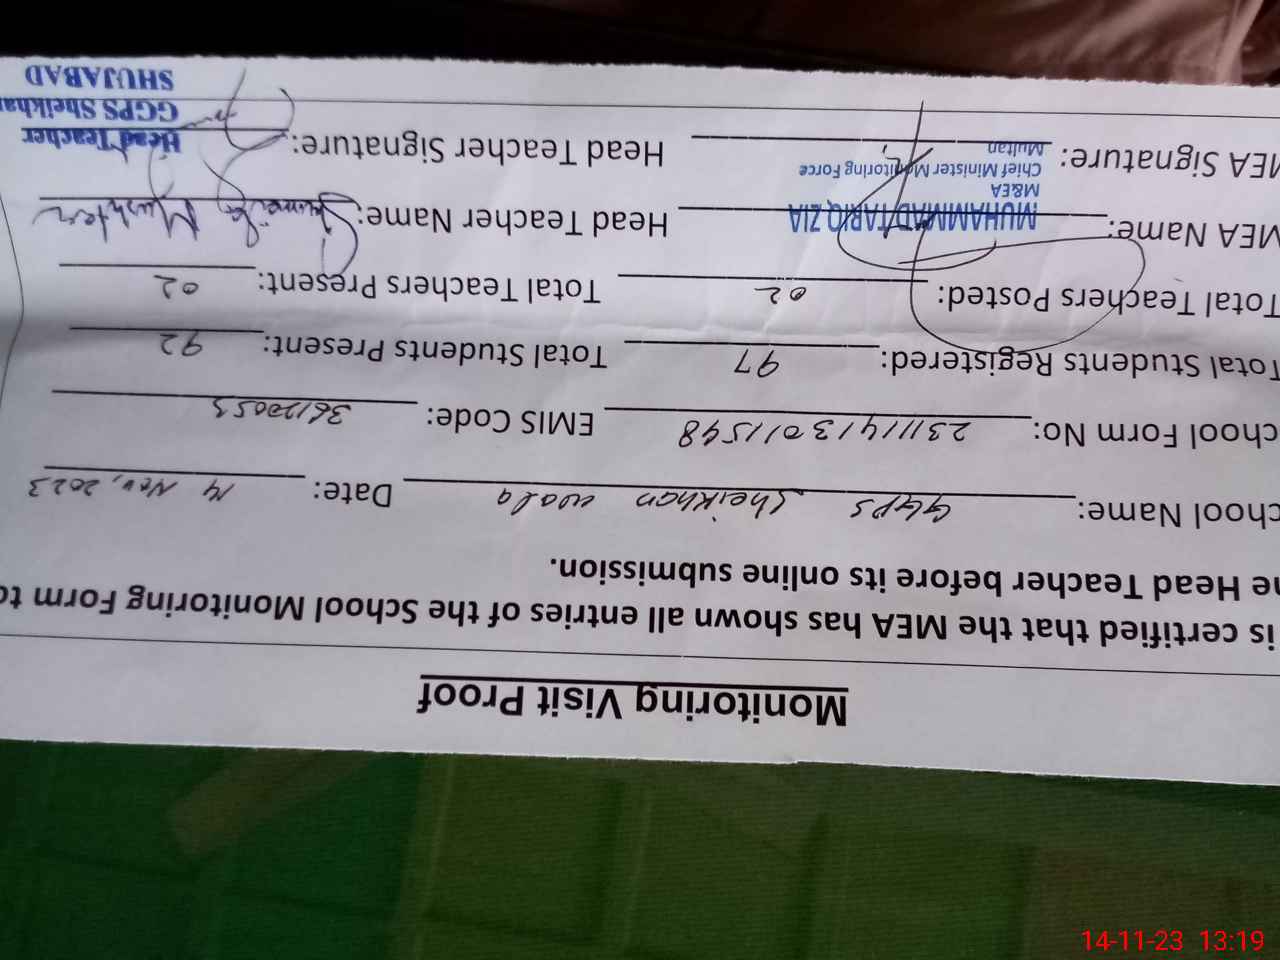 Monitoring Visit Proof
is certified that the MEA has shown all entries of the School Monitoring Form to
he Head Teacher before its online submission.
chool Name: GGPS Sheikhan wala Date: 14 Nov, 2023
chool Form No: 23111413011548 EMIS Code: 36120053
Total Students Registered: 97 Total Students Present: 92
Total Teachers Posted: 02 Total Teachers Present: 02
MEA Name: MUHAMMAD TARIQ ZIA Head Teacher Name: Shumaila
M&EA
Chief Minister Monitoring Force
MEA Signature: Multan Head Teacher Signature: Head Teacher
GGPS Sheikhan
SHUJABAD
14-11-23 13:19